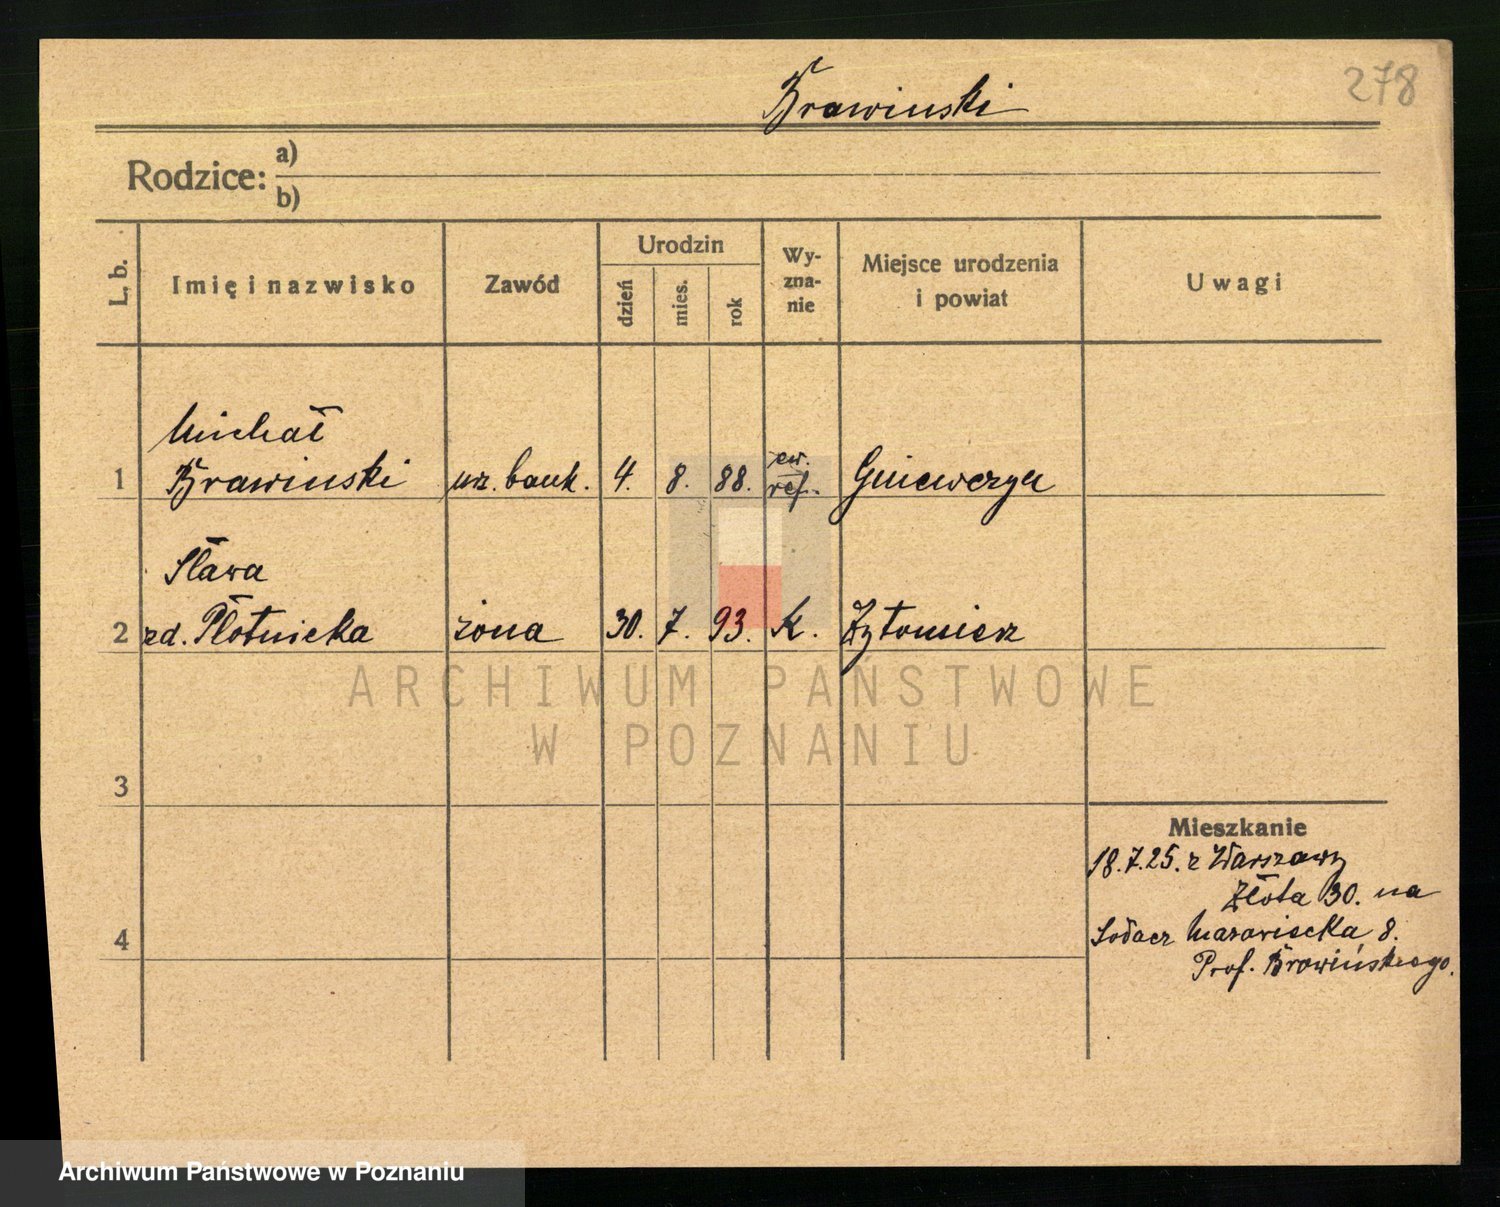 278
Brawinski
Rodzice: a)
b)
L. b.
Imię i nazwisko
Zawód
Urodzin
dzień
mies.
rok
Wy-
zna-
nie
Miejsce urodzenia
i powiat
Uwagi
Michał
1 Brawinski urz. bank. 4. 8. 88. ew. ref. Gniewczyn
Sława
2 zd. Płotnicka żona 30. 7. 93. k. Żytomierz
ARCHIWUM PAŃSTWOWE
W POZNANIU
3
Mieszkanie
18.7.25. z Warszawy
Złota 30. na
4
Sołacz Mazowiecka 8.
Prof. Browińskiego.
Archiwum Państwowe w Poznaniu